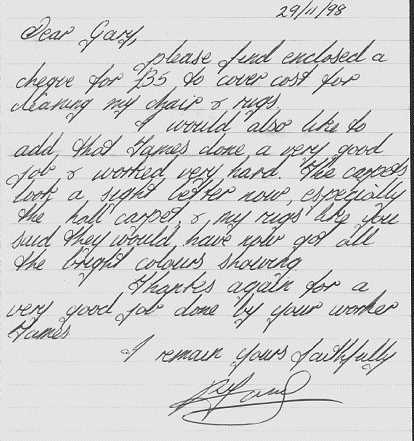 29/11/98
Dear Gary,
please find enclosed a
cheque for £35 to cover cost for
cleaning my chair & rugs.
I would also like to
add, that James done a very good
job, & worked very hard. The carpets
look a sight better now, especially
the hall carpet, & my rugs like you
said they would, have now got all
the bright colours showing
Thanks again for a
very good job done by your worker
James
I remain yours faithfully